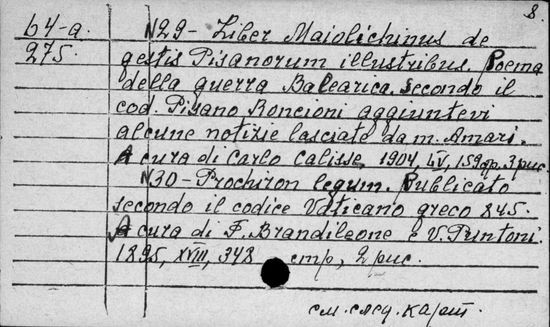 8.
64-a.
275.
N29- Liber Maiolichinus de
gestis Pisanorum illustribus. Poema
della guerra Balearica secondo il
cod. Pisano Roncioni aggiuntevi
alcune notizie lasciate da m. Amari.
A cura di Carlo Calisse, 1904, LV, 159 стр. 3 рис.
N30-Prochiron legum. Publicato
secondo il codice Vaticano greco 845.
A cura di F. Brandileone e V. Puntoni.
1895, XVIII, 348 стр, 2 рис.
см. след. карт.